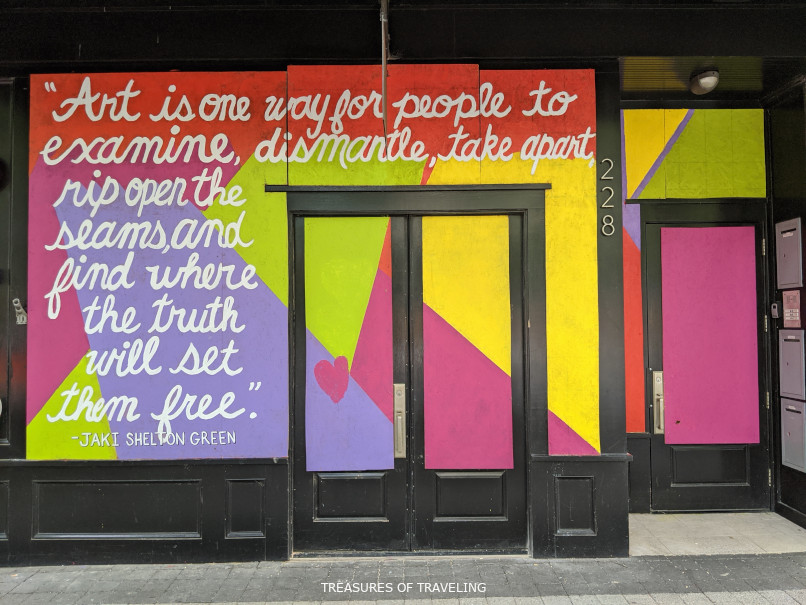 "Art is one way for people to
examine, dismantle, take apart,
rip open the
seams, and
find where
the truth
will set
them free".
-JAKI SHELTON GREEN
228
TREASURES OF TRAVELING